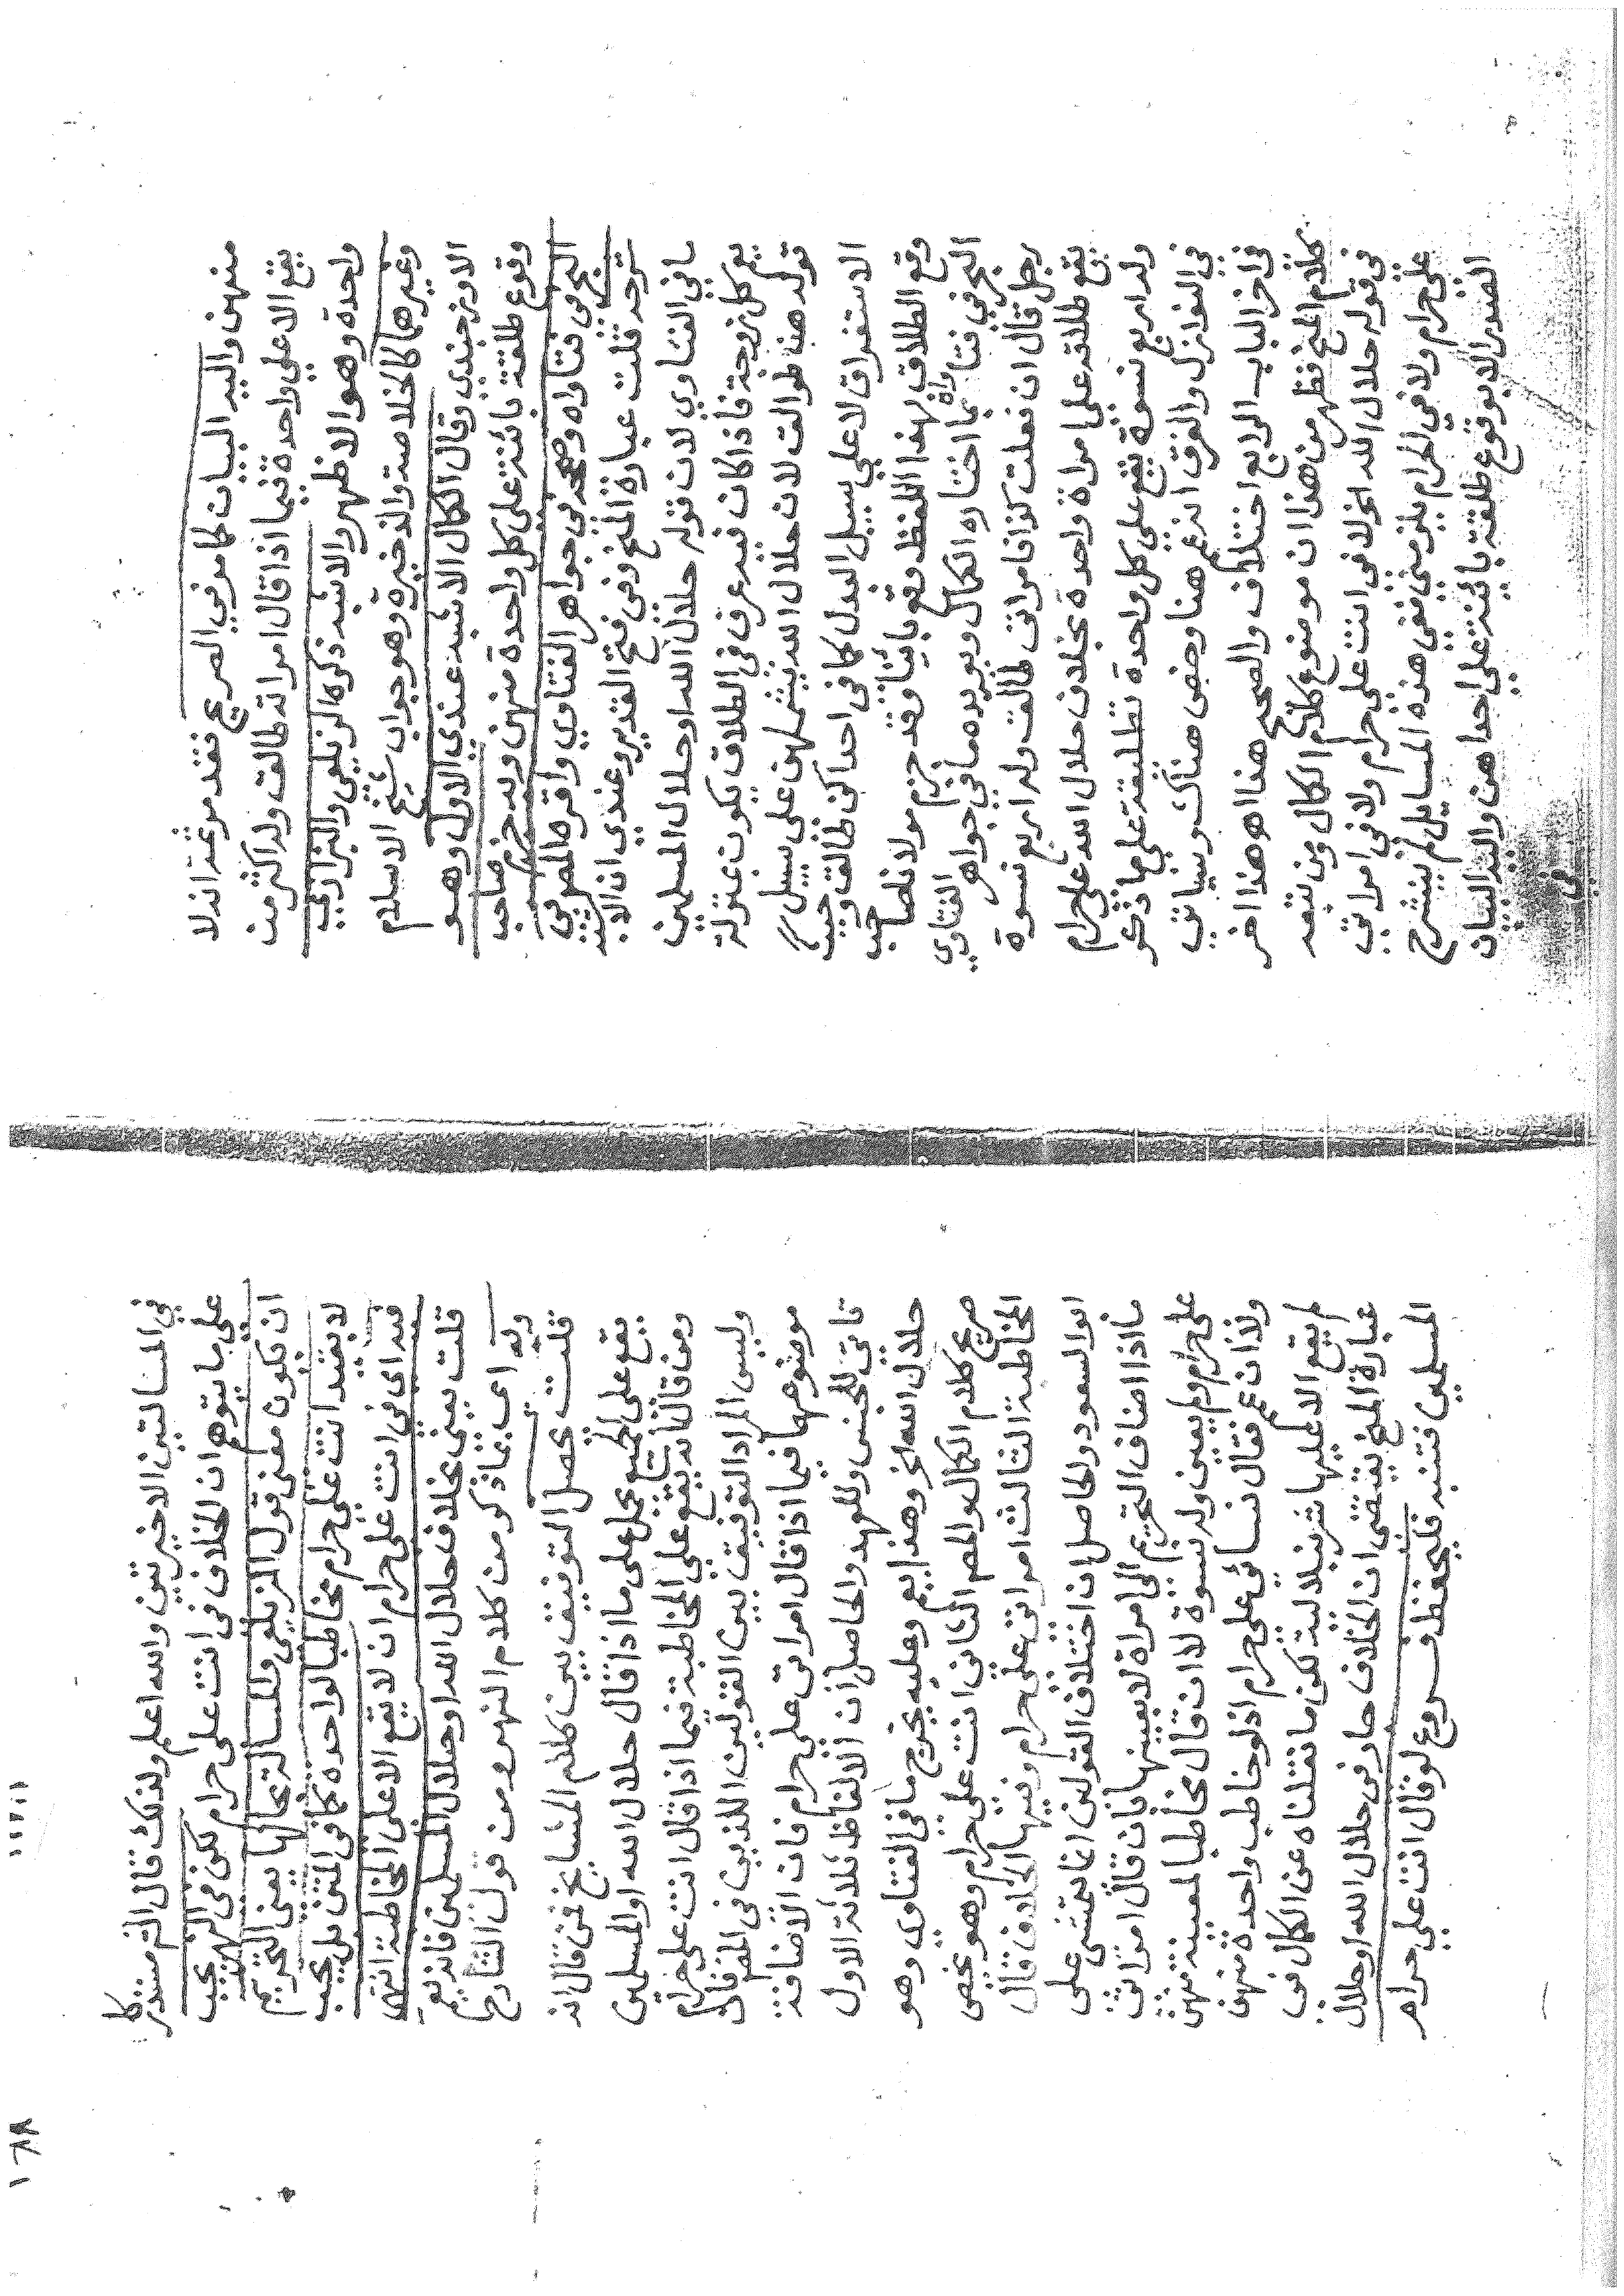 منهن واليه البيان كما مر في الصريح فقد مر ثمة انه لا
يقع الا على واحدة فيما اذا قال امراته طالق وله اكثر من
واحدة وهو الاظهر والاشبه ذكره الزيلعي والبزازي
وغيرهما كالخلاصة والذخيرة وهو جواب شيخ الاسلام
الاوزجندي وقال الكمال الاشبه عندي الاول وهو
وقوع طلقة بائنة على كل واحدة منهن وبه جزم صاحب
البحر في فتاواه وصححه في جواهر الفتاوي واقره المص في
شرحه قلت عبارة المنح وفي فتح القدير وعندي ان الاشبه
ما في الفتاوي لان قوله حلال الله او حلال المسلمين
يعم كل زوجة فاذا كان فيه عرف في الطلاق يكون بمنزلة
قوله هن طوالق لان حلال الله يشملهن على سبيل
الاستغراق لا على سبيل البدل كما في احداكن طالق وحيث
وقع الطلاق بهذا اللفظ وقع بائنا وقد جزم مولانا صاحب
البحر في فتاواه بما اختاره الكمال ويويده ما في جواهر الفتاوي
رجل قال ان فعلت كذا فامراتي طالق وله اربع نسوة
يقع طلاقه على امراة واحدة بخلاف حلال الله علي حرام
وله اربع نسوة يقع على كل واحدة تطليقة على ما ذكر
في النوازل والفرق انه عم هنا وخص هناك وسياتي
في اخر الباب الرابع اختلاف والصحيح هنا اهـ هذا اخر
كلام المنح فظهر من هذا ان موضوع كلام الكمال ومن تبعه
في قوله حلال الله الخ لا في انت علي حرام ولا في امراتي
علي حرام ولا في الحرام يلزمني ففي هذه المسايل لم ينشرح
الصدر الا بوقوع طلقة بائنة على احداهن واليه البيان
في
في المسالتين الاخيرتين والله اعلم ولذلك قال الش مستدركا
على ما يتوهم ان الخلاف في انت علي حرام لكن في النهر يجب
ان يكون معنى قول الزيلعي والمسالة بحالها يعني التحريم
لا بقيد انت علي حرام مخاطبا لواحدة كما في المتن بل يجب
فيه اي في انت علي حرام ان لا يقع الا على المخاطبة انتهى
قلت يعني بخلاف حلال الله او حلال المسلمين فانه يعم
وبه اي بما ذكر من كلام النهر ومن قول الشارح
قلت يحصل التوفيق بين كلام المشايخ فمن قال انه
يقع على الجميع يحمل على ما اذا قال حلال الله او المسلمين
ومن قال بانه يقع على المخاطبة فيما اذا قال انت علي حرام
وليس المراد التوفيق بين القولين اللذين في المص فان
موضوعهما فيما اذا قال امراتي علي حرام فان الاضافة
تاتي للجنس وللعهد والحاصل ان الالفاظ ثلاثة الاول
حلال الله الخ وهذا يعم وعليه يخرج ما في الفتاوي وهو
صريح كلام الكمال والمص الثاني انت علي حرام وهو يخص
المخاطبة الثالث امراتي علي حرام وفيها الخلاف قال
ابو السعود والحاصل ان اختلاف القولين انما يتمشى على
ما اذا اضاف التحريم الى امراة لا بعينها بان قال امراتي
علي حرام ولم يعين وله نسوة لا ان قال مخاطبا لمعينة منهن
ولا ان عم فقال نسائي علي حرام اذ لو خاطب واحدة منهن
لم يقع الا عليها شرنبلالية لكن ما نقلناه عن الكمال في
عبارة المنح يقتضي ان الخلاف جار في حلال الله او حلال
المسلمين فتنبه فليحفظ فروع لو قال انت علي حرام
١٦٨